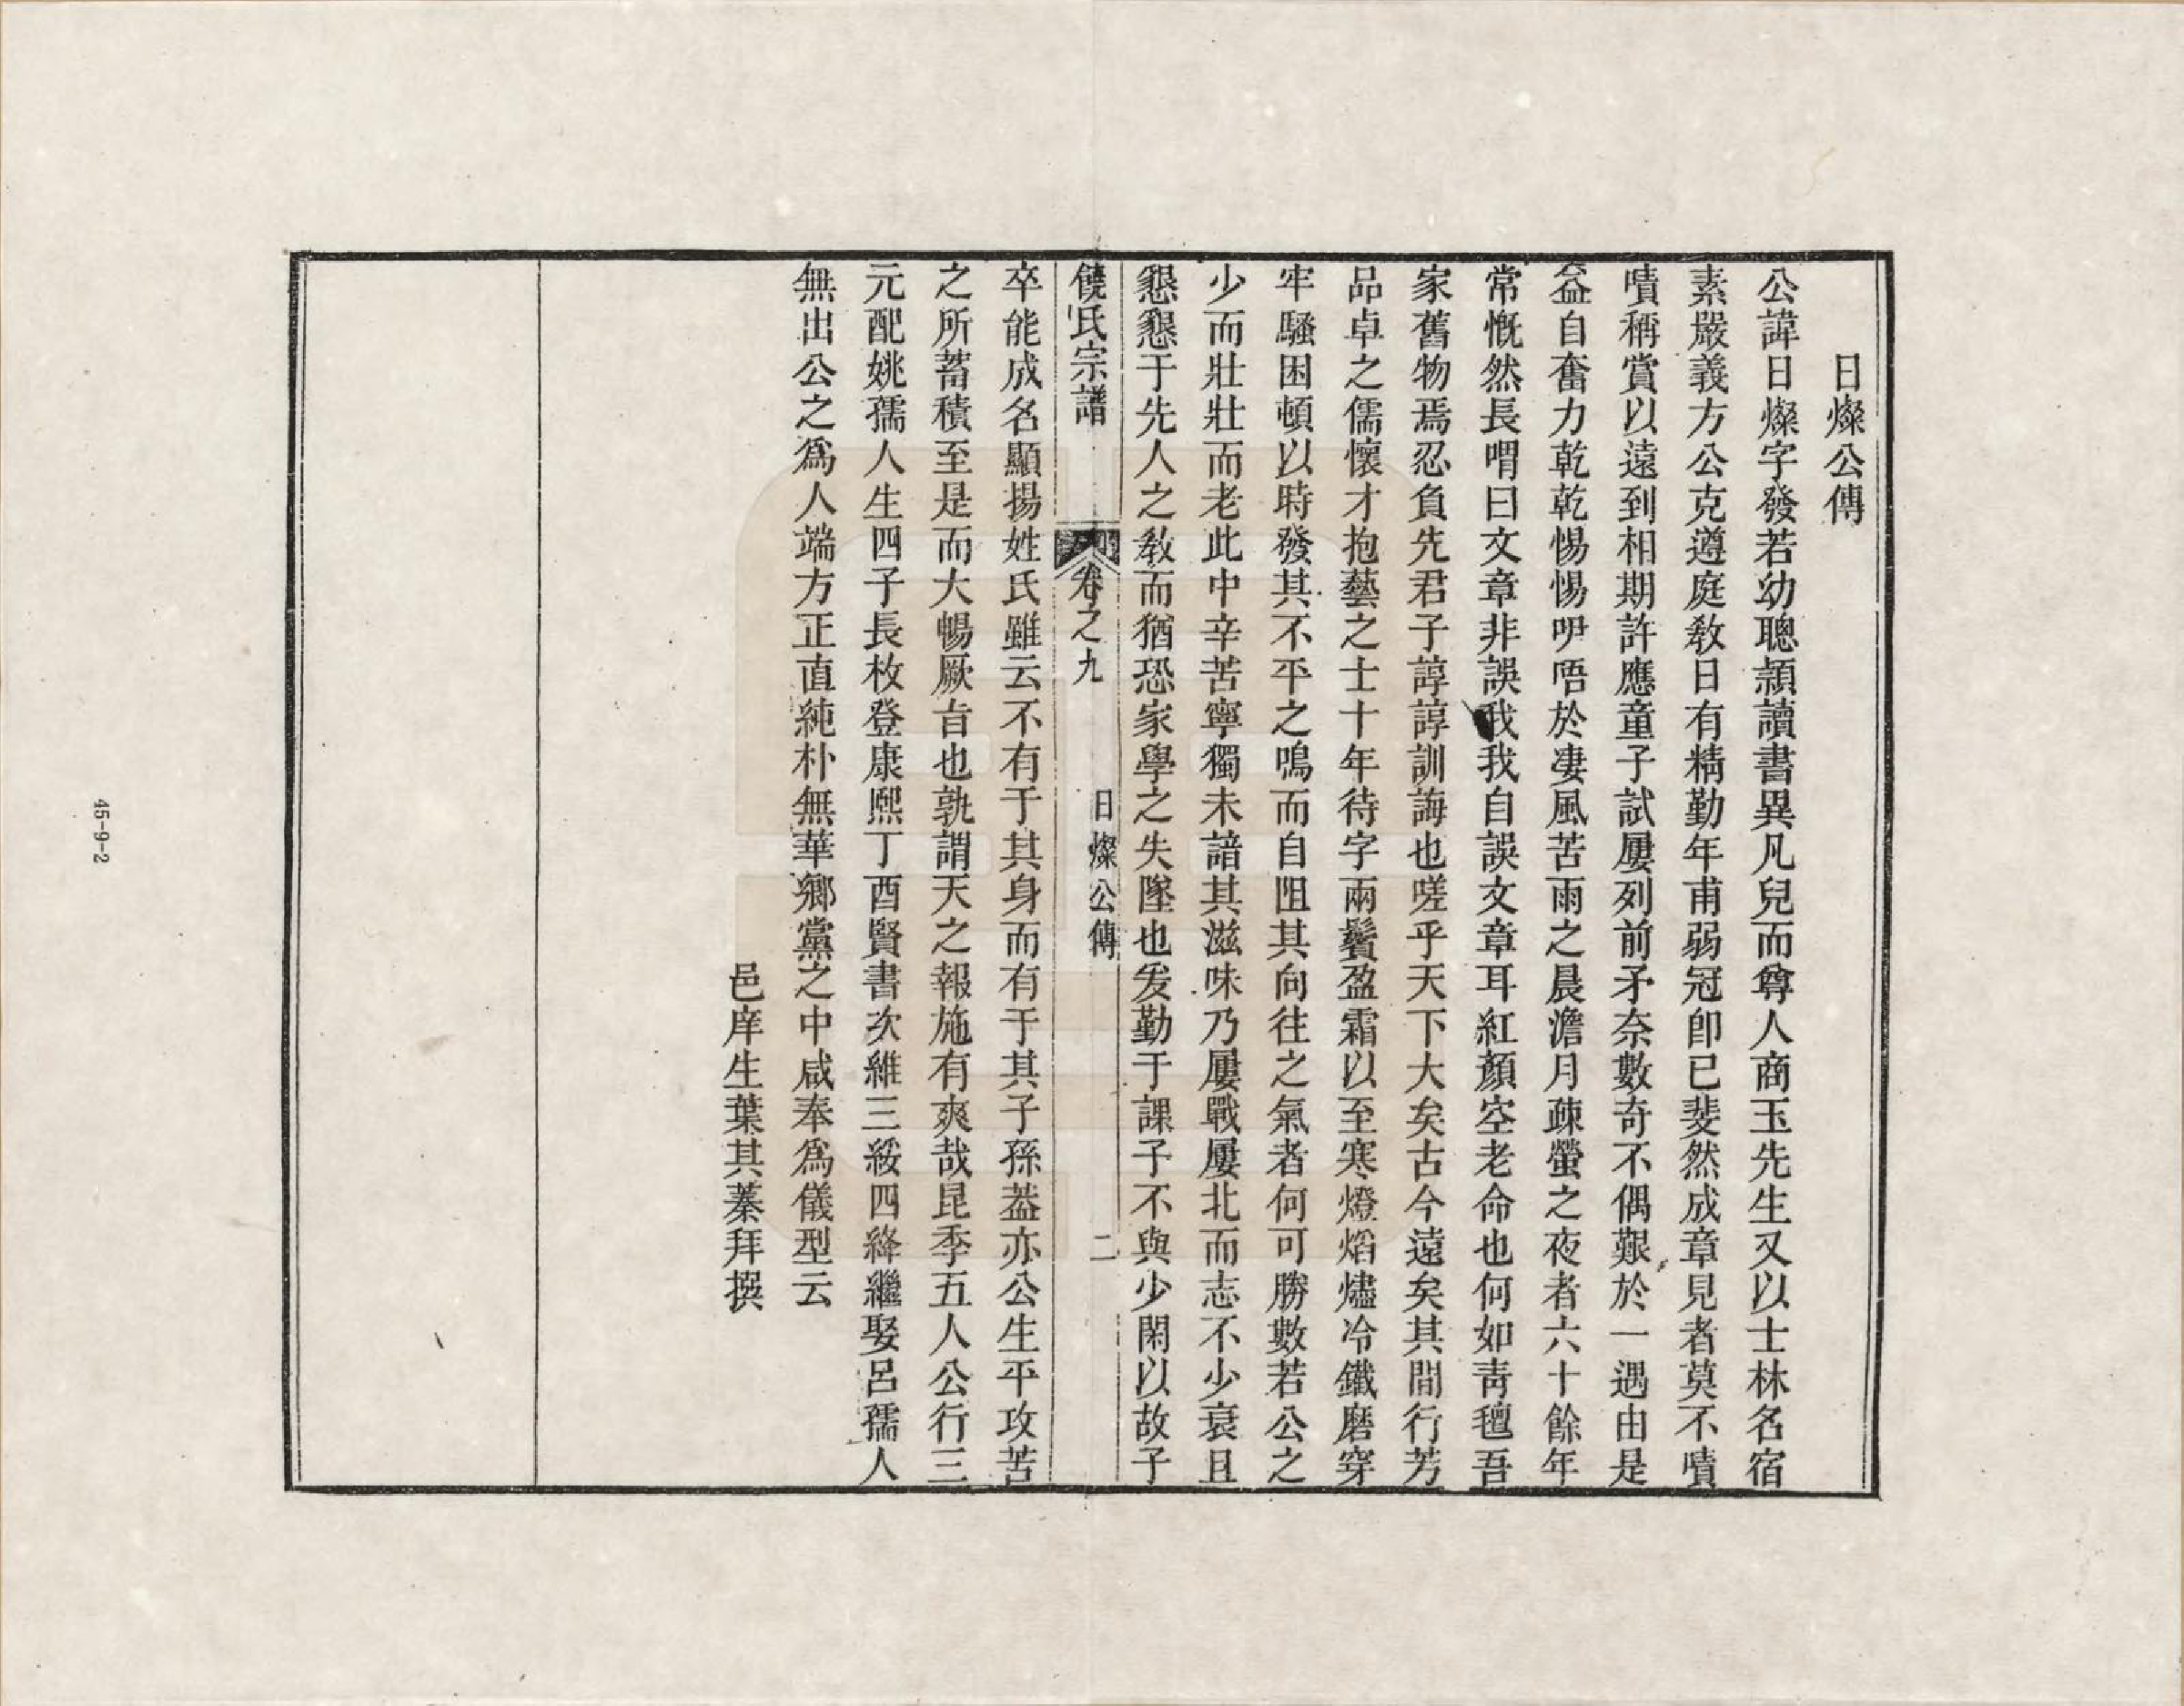 日燦公傳
公諱日燦字發若幼聰頴讀書異凡兒而尊人商玉先生又以士林名宿
素嚴義方公克遵庭敎日有精勤年甫弱冠卽已斐然成章見者莫不嘖
嘖稱賞以遠到相期許應童子試屢列前矛奈數奇不偶艱於一遇由是
益自奮力乾乾惕惕咿唔於凄風苦雨之晨澹月疎螢之夜者六十餘年
常慨然長喟曰文章非誤我我自誤文章耳紅顏空老命也何如靑氊吾
家舊物焉忍負先君子諄諄訓誨也嗟乎天下大矣古今遠矣其間行芳
品卓之儒懷才抱藝之士十年待字兩鬢盈霜以至寒燈焰燼冷鐵磨穿
牢騷困頓以時發其不平之鳴而自阻其向往之氣者何可勝數若公之
少而壯壯而老此中辛苦寧獨未諳其滋味乃屢戰屢北而志不少衰且
懇懇于先人之敎而猶恐家學之失墜也爰勤于課子不與少閑以故子
饒氏宗譜 卷之九 日燦公傳 二
卒能成名顯揚姓氏雖云不有于其身而有于其子孫葢亦公生平攻苦
之所蓄積至是而大暢厥旨也孰謂天之報施有爽哉昆季五人公行三
元配姚孺人生四子長枚登康熙丁酉賢書次維三綏四絳繼娶呂孺人
無出公之爲人端方正直純朴無華鄉黨之中咸奉爲儀型云
邑庠生葉其蓁拜撰
45-9-2